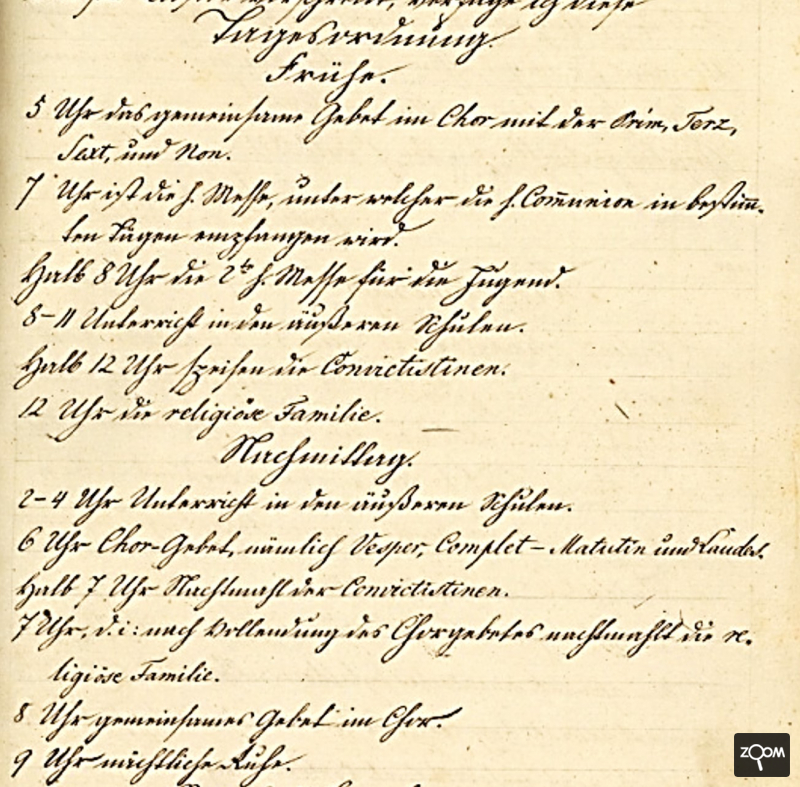 verfüge ich diese
Tagesordnung.
Frühe.
5 Uhr das gemeinsame Gebet im Chor mit der Prim, Terz,
Sext, und Non.
7 Uhr ist die h. Messe, unter welcher die h. Com̅union in bestim̅-
ten Tagen empfangen wird.
Halb 8 Uhr die 2te h. Messe für die Jugend.
8-11 Unterricht in den äußeren Schulen.
Halb 12 Uhr speisen die Convictistinen.
12 Uhr die religiöse Familie.
Nachmittag.
2-4 Uhr Unterricht in den äußeren Schulen.
6 Uhr Chor-Gebet, nämlich Vesper, Complet - Matutin und Laudes.
Halb 7 Uhr Nachtmahl der Convictistinen.
7 Uhr, d.i: nach Vollendung des Chorgebetes nachtmahlt die re-
ligiöse Familie.
8 Uhr gemeinsames Gebet im Chor.
9 Uhr nächtliche Ruhe.
ZOOM